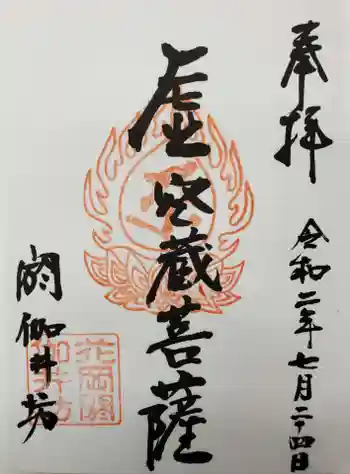 奉拝
令和二年七月二十四日
虚空蔵菩薩
閼伽井坊
花岡閼
伽井坊